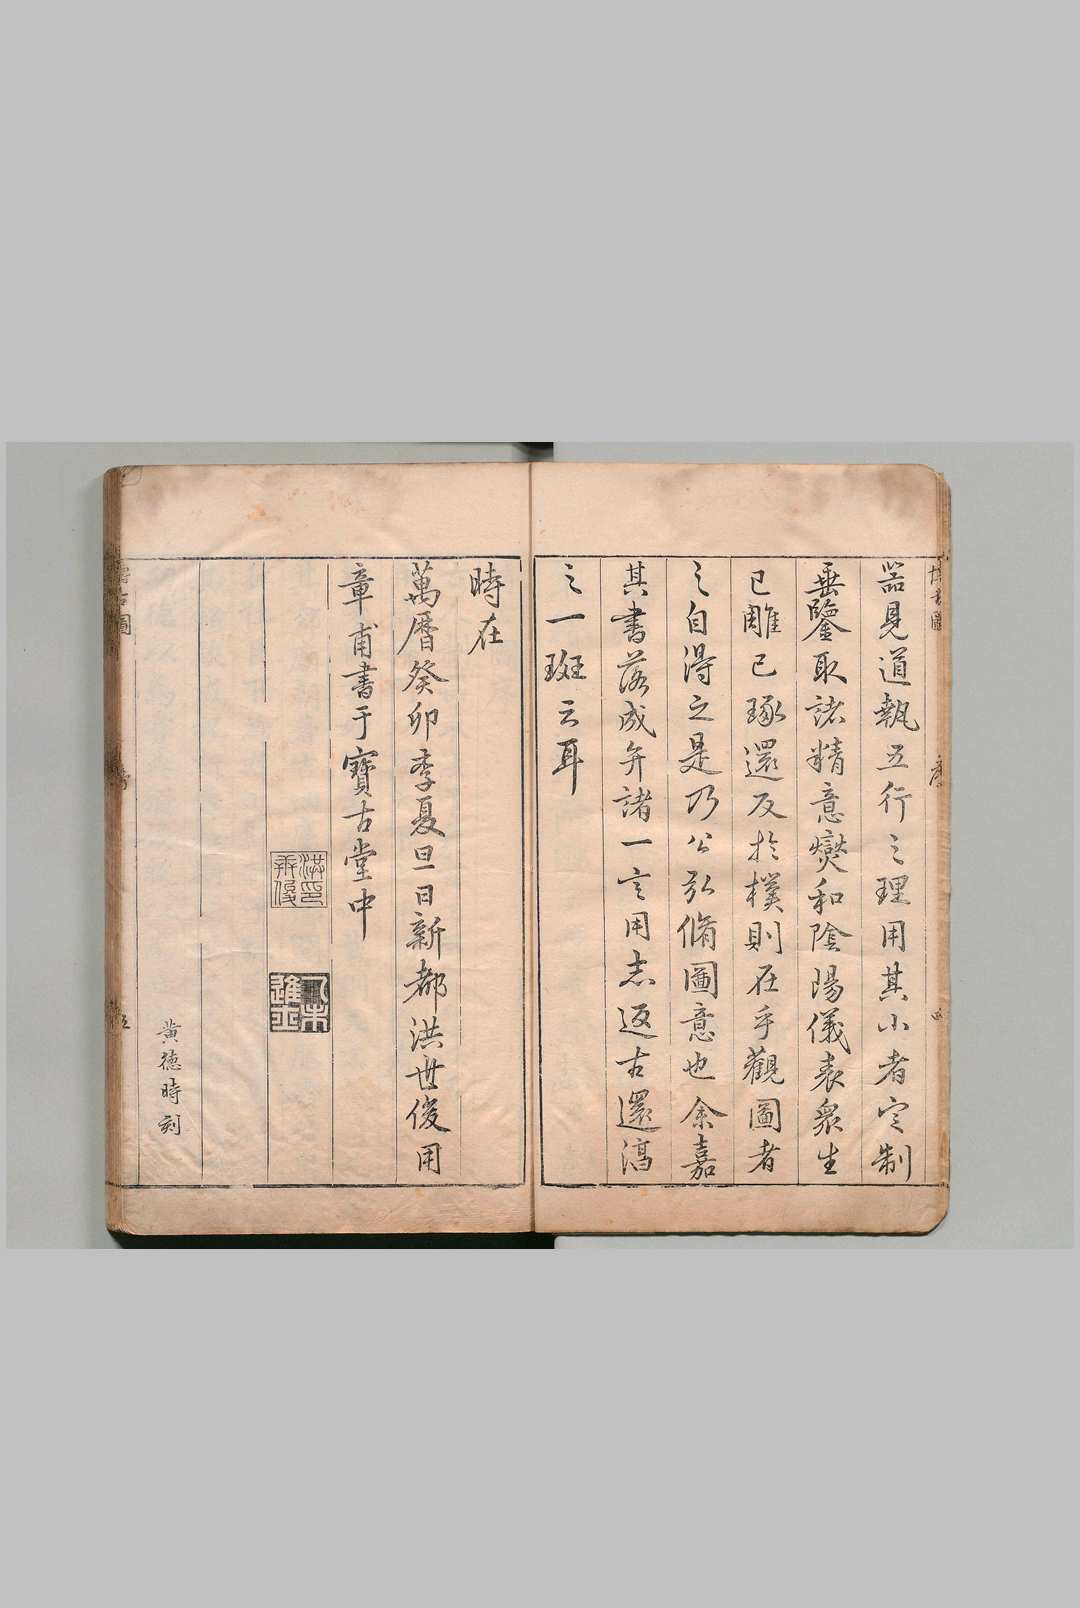 博古圖
序
四
器見道執五行之理用其小者定制
垂鑒取諸精意爕和陰陽儀表衆生
已雕已琢還反於樸則在乎觀圖者
之自得之是乃公弘脩圖意也余嘉
其書落成弁諸一言用志返古還淳
之一斑云耳
時在
萬曆癸卯季夏旦日新都洪世俊用
章甫書于寶古堂中
洪印世俊
黃德時刻
博古圖
五